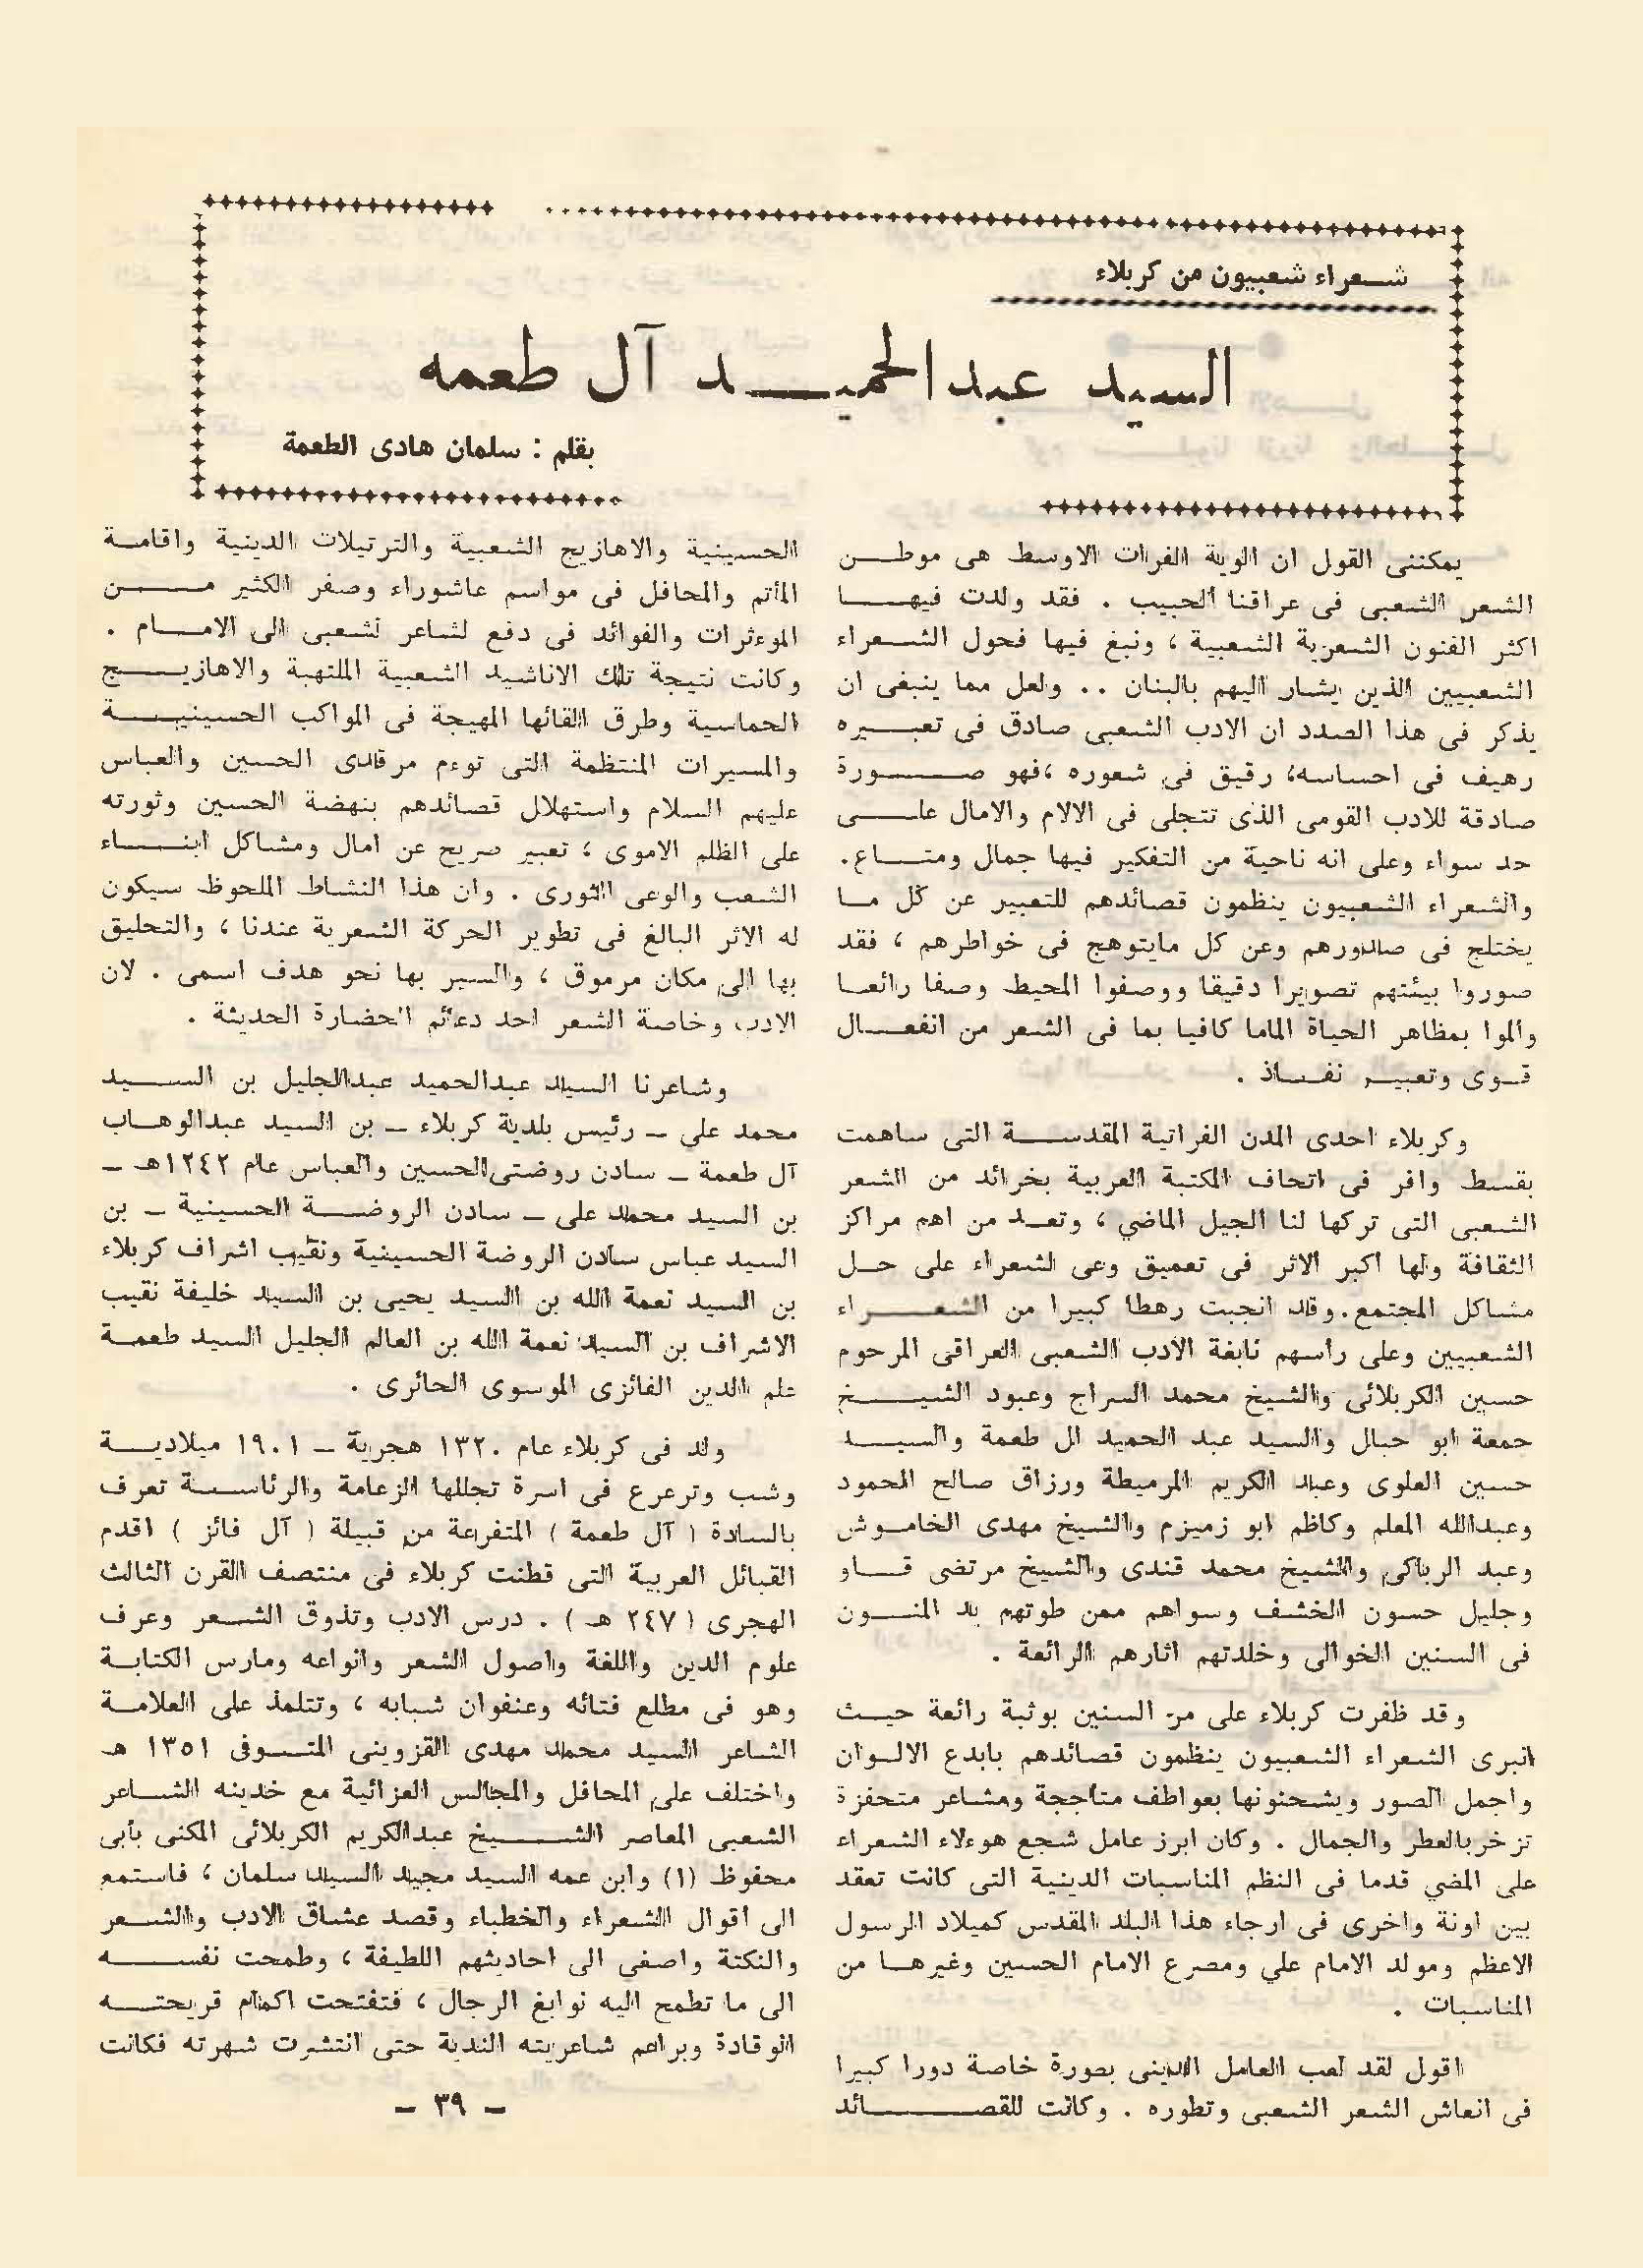 شعراء شعبيون من كربلاء
السيد عبدالحميد آل طعمه
بقلم : سلمان هادى الطعمة
يمكننى القول ان الوية الفرات الاوسط هى موطن
الشعر الشعبى فى عراقنا الحبيب . فقد ولدت فيها
اكثر الفنون الشعرية الشعبية ، ونبغ فيها فحول الشعراء
الشعبيين الذين يشار اليهم بالبنان .. ولعل مما ينبغى ان
يذكر فى هذا الصدد ان الادب الشعبى صادق فى تعبيره
رهيف فى احساسه، رقيق فى شعوره ،فهو صورة
صادقة للادب القومى الذى تتجلى فى الالام والامال على
حد سواء وعلى انه ناحية من التفكير فيها جمال ومتاع.
والشعراء الشعبيون ينظمون قصائدهم للتعبير عن كل ما
يختلج فى صدورهم وعن كل مايتوهج فى خواطرهم ، فقد
صوروا بيئتهم تصويرا دقيقا ووصفوا المحيط وصفا رائعا
والموا بمظاهر الحياة الماما كافيا بما فى الشعر من انفعال
قوى وتعبير نفاذ .
وكربلاء احدى المدن الفراتية المقدسة التى ساهمت
بقسط وافر فى اتحاف المكتبة العربية بخرائد من الشعر
الشعبى التى تركها لنا الجيل الماضي ، وتعد من اهم مراكز
الثقافة ولها اكبر الاثر فى تعميق وعى الشعراء على حل
مشاكل المجتمع. وقد انجبت رهطا كبيرا من الشعراء
الشعبيين وعلى رأسهم نابغة الادب الشعبى العراقى المرحوم
حسين الكربلائى والشيخ محمد السراج وعبود الشيخ
جمعة ابو حبال والسيد عبد الحميد ال طعمة والسيد
حسين العلوى وعبد الكريم المرميطة ورزاق صالح المحمود
وعبدالله المعلم وكاظم ابو زميزم والشيخ مهدى الخاموش
وعبد الرباكى والشيخ محمد قندى والشيخ مرتضى قاو
وجليل حسون الخشف وسواهم ممن طوتهم يد المنون
فى السنين الخوالى وخلدتهم اثارهم الرائعة .
وقد ظفرت كربلاء على مر السنين بوثبة رائعة حيث
انبرى الشعراء الشعبيون ينظمون قصائدهم بابدع الالوان
واجمل الصور ويشحنونها بعواطف متأججة ومشاعر متحفزة
تزخر بالعطر والجمال . وكان ابرز عامل شجع هوءلاء الشعراء
على المضي قدما فى النظم المناسبات الدينية التى كانت تعقد
بين اونة واخرى فى ارجاء هذا البلد المقدس كميلاد الرسول
الاعظم ومولد الامام علي ومصرع الامام الحسين وغيرها من
المناسبات .
اقول لقد لعب العامل الدينى بصورة خاصة دورا كبيرا
فى انعاش الشعر الشعبى وتطوره . وكانت للقصائد
الحسينية والاهازيج الشعبية والترتيلات الدينية واقامة
المأتم والمحافل فى مواسم عاشوراء وصفر الكثير من
الموءثرات والفوائد فى دفع لشاعر لشعبى الى الامام .
وكانت نتيجة تلك الاناشيد الشعبية الملتهبة والاهازيج
الحماسية وطرق القائها المهيجة فى المواكب الحسينية
والمسيرات المنتظمة التى توءم مرقدى الحسين والعباس
عليهم السلام واستهلال قصائدهم بنهضة الحسين وثورته
على الظلم الاموى ، تعبير صريح عن امال ومشاكل ابناء
الشعب والوعى الثورى . وان هذا النشاط الملحوظ سيكون
له الاثر البالغ فى تطوير الحركة الشعرية عندنا ، والتحليق
بها الى مكان مرموق ، والسير بها نحو هدف اسمى . لان
الادب وخاصة الشعر احد دعائم الحضارة الحديثة .
وشاعرنا السيد عبدالحميد عبدالجليل بن السيد
محمد علي – رئيس بلدية كربلاء – بن السيد عبدالوهاب
آل طعمة – سادن روضتى الحسين والعباس عام ١٢٤٢هـ –
بن السيد محمد على – سادن الروضة الحسينية – بن
السيد عباس سادن الروضة الحسينية ونقيب اشراف كربلاء
بن السيد نعمة الله بن السيد يحيى بن السيد خليفة نقيب
الاشراف بن السيد نعمة الله بن العالم الجليل السيد طعمة
علم الدين الفائزى الموسوى الحائرى .
ولد فى كربلاء عام ١٣٢٠ هجرية – ١٩٠١ ميلادية
وشب وترعرع فى اسرة تجللها الزعامة والرئاسة تعرف
بالسادة ( آل طعمة ) المتفرعة من قبيلة ( آل فائز ) اقدم
القبائل العربية التى قطنت كربلاء فى منتصف القرن الثالث
الهجرى ( ٢٤٧ هـ ) . درس الادب وتذوق الشعر وعرف
علوم الدين واللغة واصول الشعر وانواعه ومارس الكتابة
وهو فى مطلع فتائه وعنفوان شبابه ، وتتلمذ على العلامة
الشاعر السيد محمد مهدى القزوينى المتوفى ١٣٥١ هـ
واختلف على المحافل والمجالس العزائية مع خدينه الشاعر
الشعبى المعاصر الشيخ عبدالكريم الكربلائى المكنى بأبى
محفوظ (١) وابن عمه السيد مجيد السيد سلمان ، فاستمع
الى أقوال الشعراء والخطباء وقصد عشاق الادب والشعر
والنكتة واصفى الى احاديثهم اللطيفة ، وطمحت نفسه
الى ما تطمح اليه نوابغ الرجال ، فتفتحت اكمام قريحته
الوقادة وبراعم شاعريته الندية حتى انتشرت شهرته فكانت
– ٣٩ –